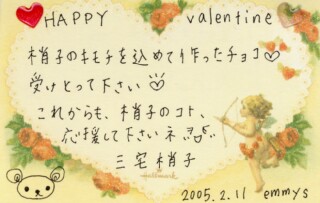 HAPPY valentine
梢子のキモチを込めてり作ったチョコ♡
受けとって下さい
これからも、梢子のコト、
応援して下さいネ
三宅梢子
Hallmark
2005.2.11 emmys